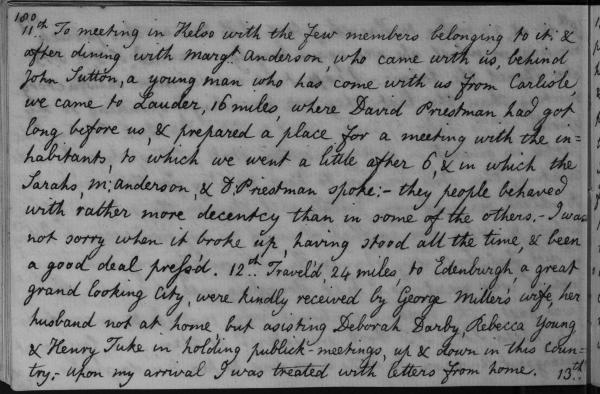 180
11th. To meeting in Kelso with the few members belonging to it; &
after dining with Margt. Anderson, who came with us, behind
John Sutton, a young man who has come with us from Carlisle,
we came to Lauder, 16 miles, where David Priestman had got
long before us, & prepared a place for a meeting with the in-
habitants, to which we went a little after 6, & in which the
Sarahs, M; Anderson, & D. Priestman spoke:- they people behaved
with rather more decentcy than in some of the others.- I was
not sorry when it broke up, having stood all the time, & been
a good deal press'd. 12th. Travel'd, 24 miles, to Edenburgh, a great
grand looking City, were kindly received by George Miller's wife, her
husband not at home but asisting Deborah Darby, Rebecca Young
& Henry Tuke in holding publick-meetings, up & down in this coun-
try;- upon my arrival I was treated with letters from home. 13th.